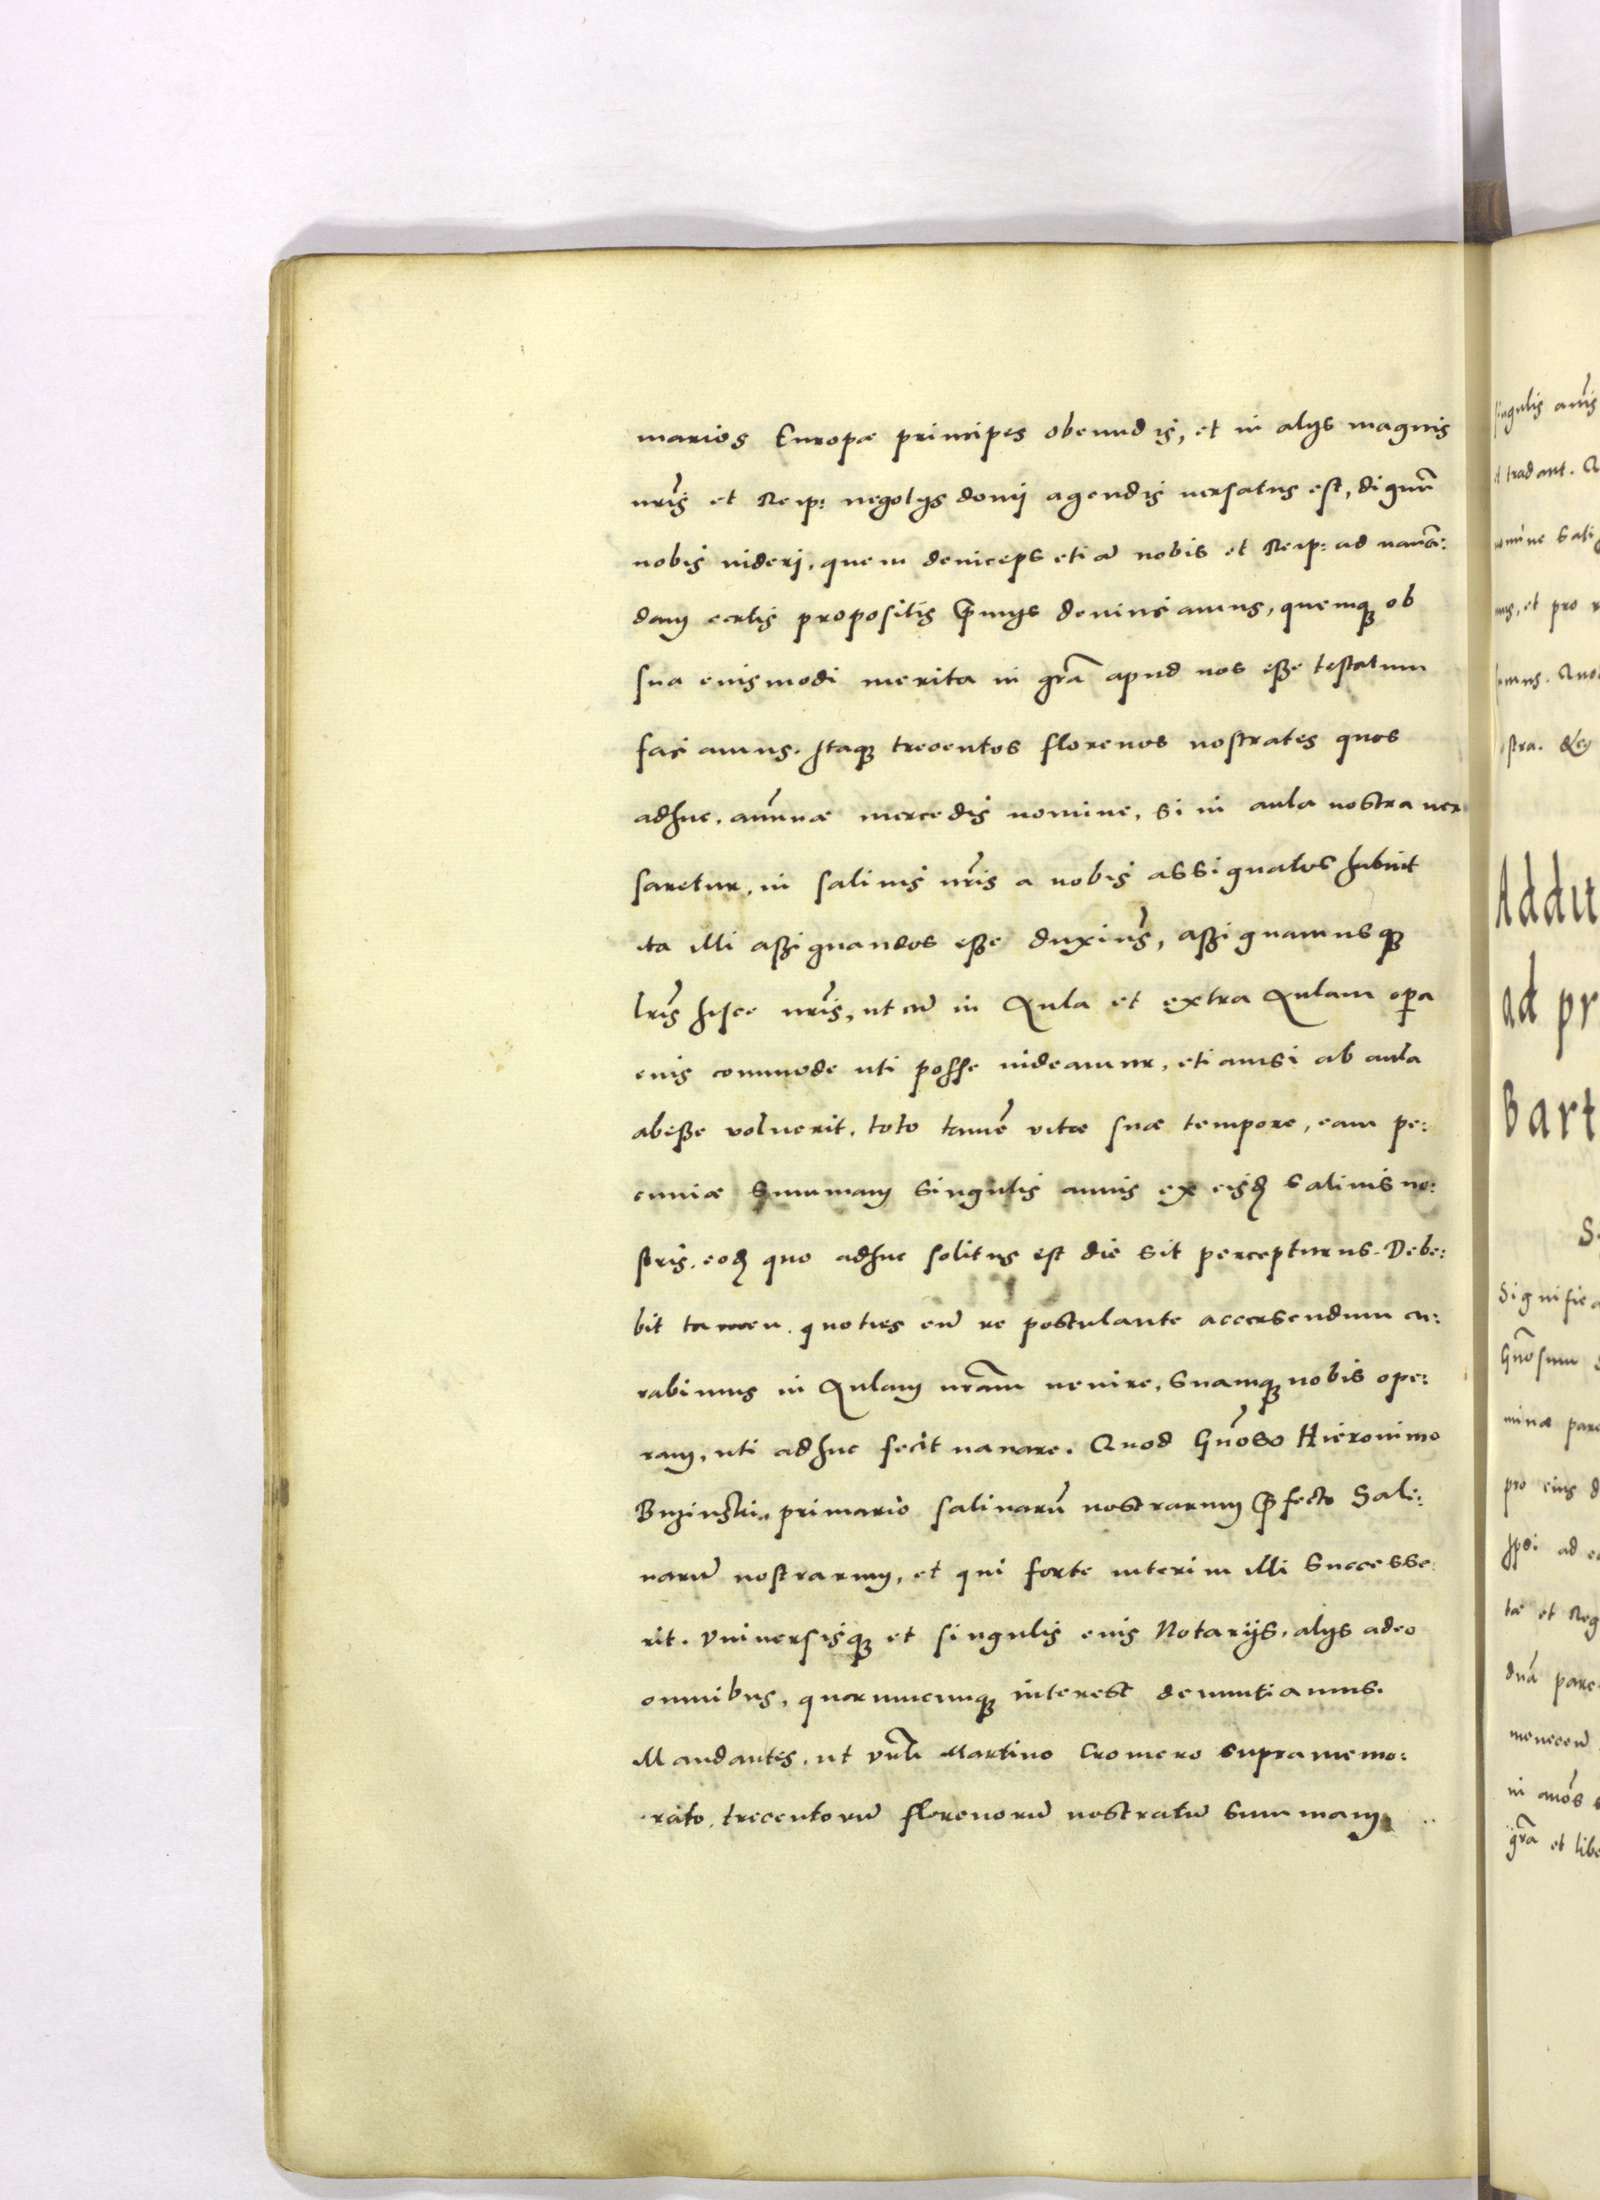 marios Europæ principes obeundis, et in alijs magnis
nr̃is et Reip: negotijs domi agendis uersatus est, dignũ
nobis uideri, quem deinceps etiã nobis et Reip: ad nauan:
dam certis propositis p̃mijs deuinciamus, quemq̃ ob
sua euismodi merita in gr̃a apud nos eße testatum
faciamus. Itaq̃ trecentos florenos nostrates quos
adhuc, annuæ mercedis nomine, si in aula nostra uer
saretur, in salinis nr̃is a nobis assignatos habuit
ita illi aßignandos eße duximũs, aßignamusq̃
lr̃is hisce nr̃is, ut cũ in Aula et extra Aulam opa
eius commode uti posse uideamur, etiamsi ab aula
abeße voluerit, toto tamẽ vitæ suæ tempore, eam pe:
cuniæ summam singulis annis ex eisd̃ salinis no:
stris, eod̃ quo adhuc solitus est die sit percepturus. Debe:
bit tamen, quoties eũ re postulante accersendum cu:
rabimus in Aulam nr̃am uenire, suamq̃ nobis ope:
ram, uti adhuc fecit nauare. Quod Gñoso Hieronimo
Buzinski, primario salinarũ nostrarum p̃fecto Sali:
narũ nostrarum, et qui forte interim illi successe:
rit. Vniuersisq̃ et singulis eius Notarijs, alijs adeo
omnibus, quorumcunq̃ interest denuntiamus.
Mandantes, ut Vñli Martino Cromero supramemo:
rato, trecentorũ florenorũ nostratũ summam
singulis annis
et tradant.
nomine
mus, et pro
Quo
stra.
Addit
ad pr
Bart
Significa
Gñosum
minæ pare
pro eius
ad
tæ et Reg
pare
in
gr̃a et libe